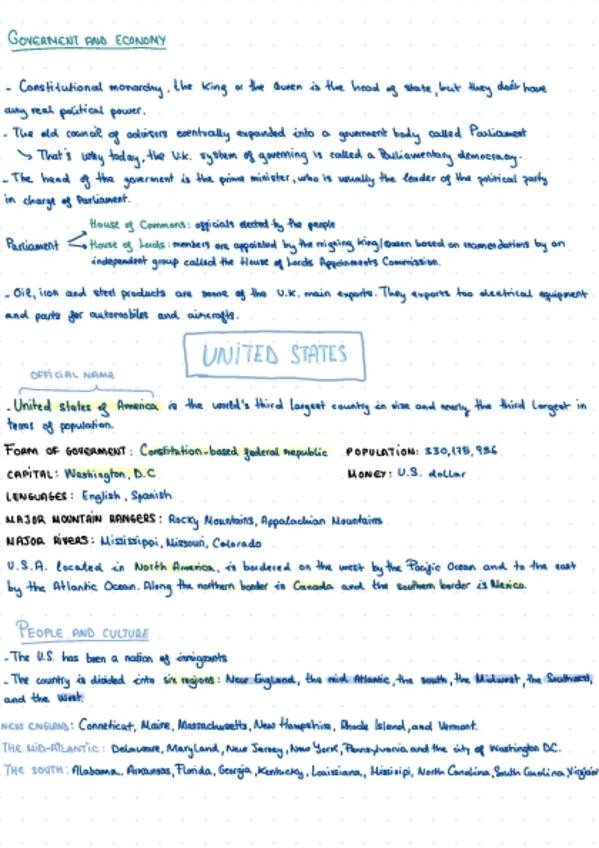 GOVERMENT AND ECONOMY
- Constitutional monarchy, the King or the Queen is the head of state, but they don't have
any real political power.
- The old council of advisers eventually expanded into a goverment body called Parliament
↳ That's why today, the U.K. system of governing is called a Parliamentary democracy.
- The head of the goverment is the prime minister, who is usually the leader of the political party
in charge of Parliament.
House of Commons: officials elected by the people
Parliament
House of Lords: members are appointed by the reigning King/Queen based on recomendations by an
independent group called the House of Lords Appointments Commission.
- Oil, iron and steel products are some of the U.K. main exports. They exports too electrical equipment
and parts for automobiles and aircrafts.
UNITED STATES
OFFICIAL NAME
- United states of America is the world's third largest country in size and nearly the third largest in
terms of population.
FORM OF GOVERMENT: Constitution-based federal republic POPULATION: 330,175,936
CAPITAL: Washington, D.C MONEY: U.S. dollar
LENGUAGES: English, Spanish
MAJOR MOUNTAIN RANGERS: Rocky Mountains, Appalachian Mountains
MAJOR RIVERS: Mississippi, Missouri, Colorado
U.S.A. located in North America, is bordered on the west by the Pacific Ocean and to the east
by the Atlantic Ocean. Along the northern border is Canada and the southern border is Mexico.
PEOPLE AND CULTURE
- The U.S. has been a nation of inmigrants
- The country is divided into six regions: New England, the mid Atlantic, the south, the Midwest, the Southwest,
and the West.
NEW ENGLAND: Conneticut, Maine, Massachusetts, New Hampshire, Rhode Island, and Vermont.
THE MID-ATLANTIC: Delaware, Maryland, New Jersey, New York, Pennsylvania and the city of Washington DC.
THE SOUTH: Alabama, Arkansas, Florida, Georgia, Kentucky, Louisiana, Missisipi, North Carolina, South Carolina, Virginia